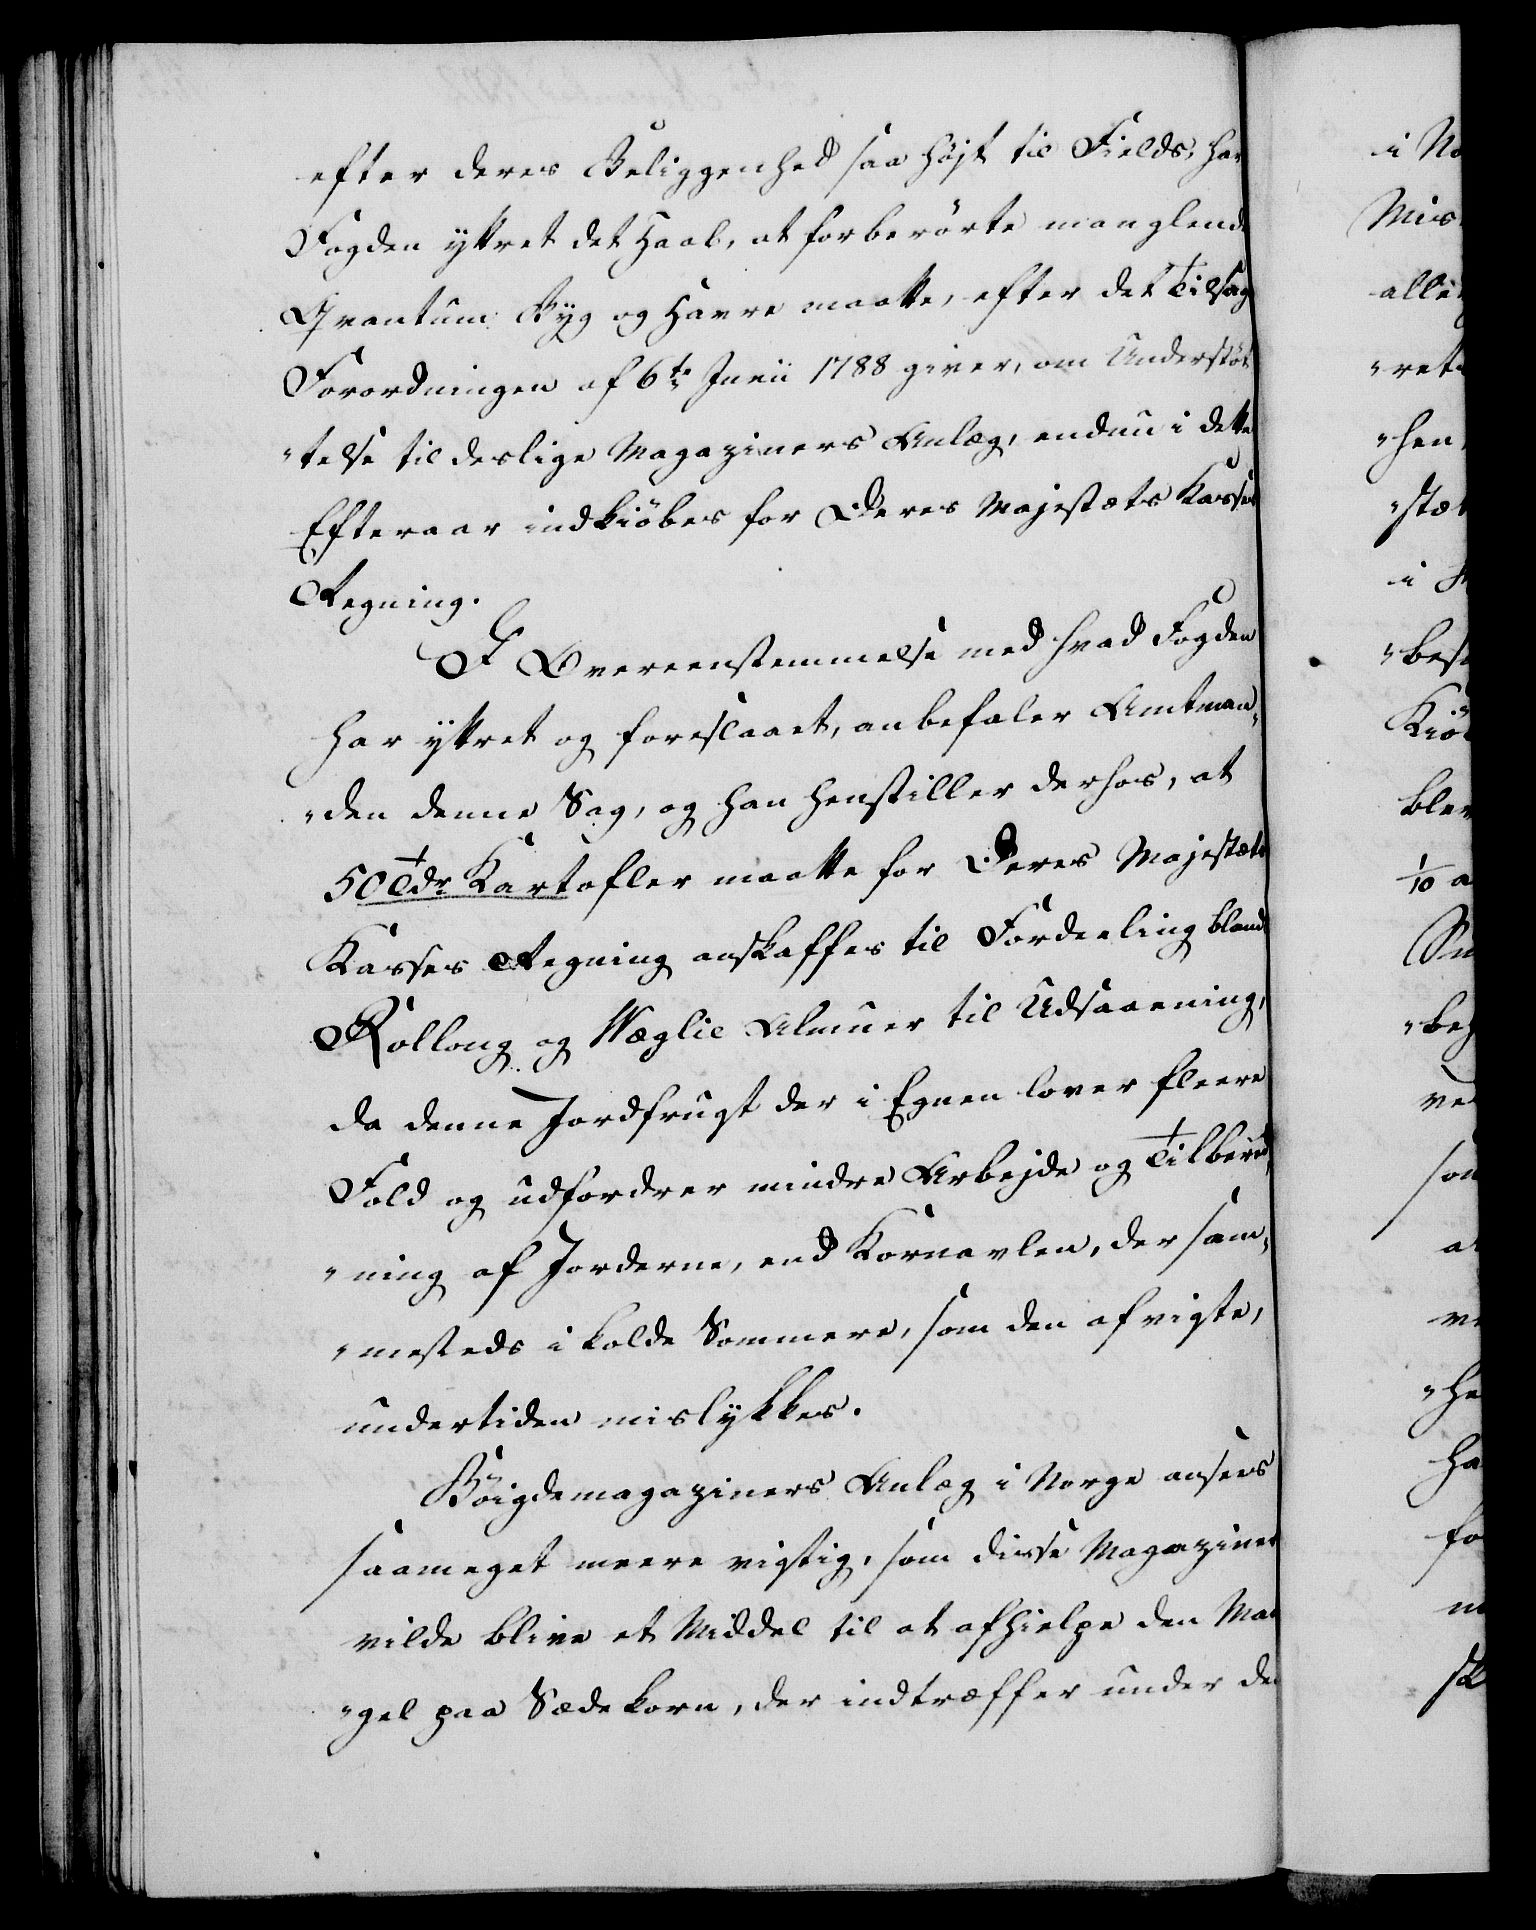 efter deres Beliggenhed saa højt til Fields, har
Fogden yttret det Haab, at forberörte manglende
Qvantum Byg og Havre maatte, efter det Tilsagn
Forordningen af 6te Junii 1788 giver, om Understöt
"telse til deslige Magaziners Anlæg, endnu i dette
Efteraar indkiöbes for Deres Majestæts Kasses
Regning.
I Overeenstemmelse med hvad Fogden
har yttret og foreslaaet, anbefaler Amtman„
"den denne Sag, og han henstiller derhos, at
50 Tdr Kartofler maatte for Deres Majestæts
Kasses Regning anskaffes til Fordeeling blandt
Rollong og Næglie Almuer til Udsaaening,
da denne Jordfrugt der i Egnen lover fleere
Fold og udfordrer mindre Arbejde og Tilbered„
"ning af Jorderne, end Kornavlen, der sam„
"mesteds i kolde Sommere, som den afvigte,
undertiden mislykkes.
Böigdemagaziners Anlæg i Norge ansees
saameget meere vigtig, som disse Magaziner
vilde blive et Middel til at afhielpe den Man
"gel paa Sædekorn, der indtræffer under de
i No
Mis
alle
"ret
"hen
"stæt
i
"bes
Kiöb
blev
1/10 a
"beg
ve
som
a
ve
"he
ha
fo